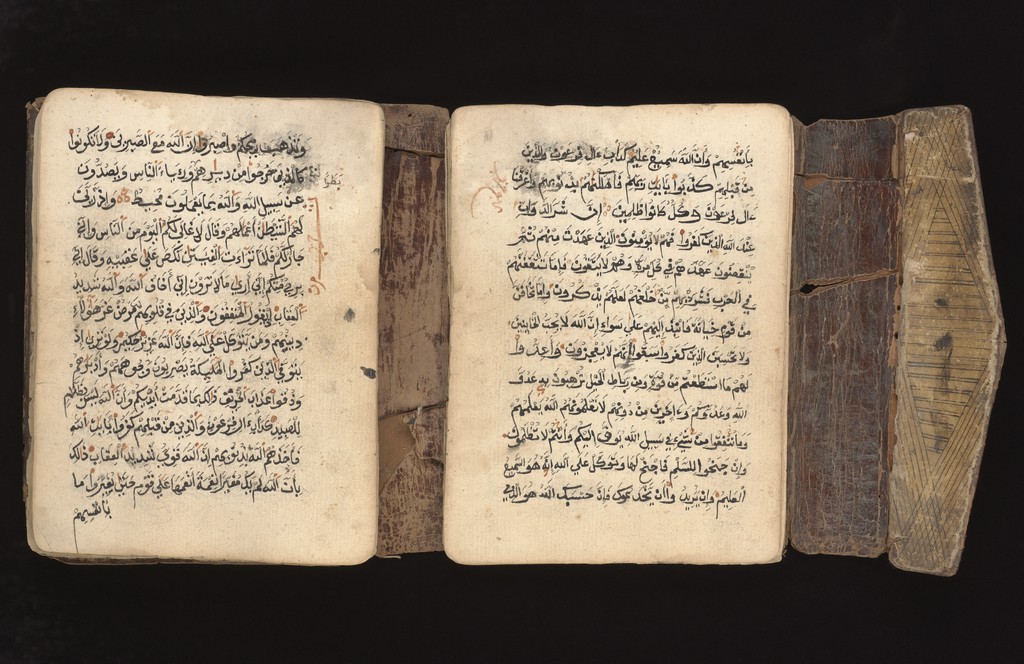 وتذهب ريحكم واصبروا إن الله مع الصبرين ولا تكونوا
كالذين خرجوا من ديرهم ورءاء الناس ويصدون
بطرا
عن سبيل الله والله بما يعملون محيط واذ زين
لهم الشيطن أعملهم وقال لا غالب لكم اليوم من الناس وإني
جار لكم فلما تراءت الفئتن نكص علي عقبيه وقال إني
بريء منكم إني أرى ما لا ترون إني أخاف الله والله شديد
العقاب إذ يقول المنفقون والذين في قلوبهم مرض غر هؤلاء
دينهم ومن يتوكل علي الله فإن الله عزيز حكيم ولو ترى إذ
يتوفي الذين كفروا الملئكة يضربون وجوههم وأدبرهم
وذوقوا عذاب الحريق ذلك بما قدمت أيديكم وأن الله ليس بظلم
للعبيد كدأب ءال فرعون والذين من قبلهم كفروا بأيت الله
فأخذهم الله بذنوبهم إن الله قوي شديد العقاب ذلك
بأن الله لم يك مغيرا نعمة أنعمها علي قوم حتى يغيروا ما
بأنفسهم
بأنفسهم وأن الله سميع عليم كدأب ءال فرعون والذين
من قبلهم كذبوا بأيت ربهم فأهلكنهم بذنوبهم وأغرقنا
ءال فرعون وكل كانوا ظلمين إن شر الدواب
عند الله الذين كفروا فهم لا يؤمنون الذين عهدت منهم ثم
ينقضون عهدهم في كل مرة وهم لا يتقون فإما تثقفنهم
في الحرب فشرد بهم من خلفهم لعلهم يذكرون وإما تخافن
من قوم خيانة فانبذ إليهم علي سواء إن الله لا يحب الخاينين
ولا تحسبن الذين كفروا سبقوا إنهم لا يعجزون وأعدوا
لهم ما استطعتم من قوة ومن رباط الخيل ترهبون به عدو
الله وعدوكم وءاخرين من دونهم لا تعلمونهم الله يعلمهم
وما تنفقوا من شيء في سبيل الله يوف إليكم وأنتم لا تظلمون
وإن جنحوا للسلم فاجنح لها وتوكل علي الله إنه هو السميع
العليم وإن يريدوا أن يخدعوك فإن حسبك الله هو الذي